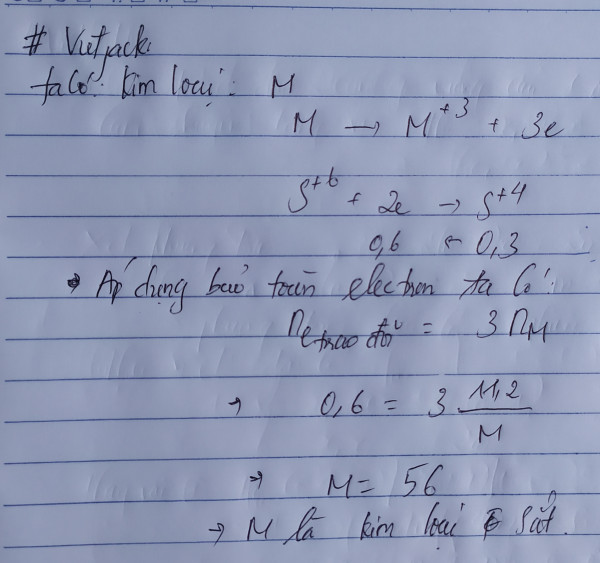 # Vietjack
ta có: kim loại: M
M → M⁺³ + 3e
S⁺⁶ + 2e → S⁺⁴
0,6 ← 0,3
→ Áp dụng bảo toàn electron ta có:
n e trao đổi = 3 nM
→ 0,6 = 3 11,2/M
→ M = 56
→ M là kim loại sắt.